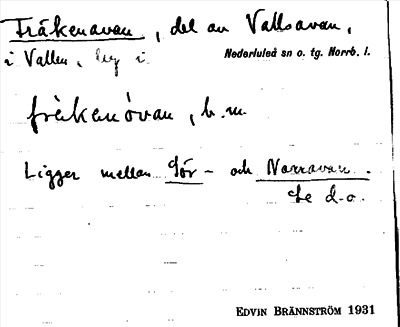 Fräkenavan, del av Vallsavan,
i Vallen, by i Nederluleå sn o. tg. Norrb. l.
frä̀kenóvan, b. m.
Ligger mellan Sör- och Norravan.
Se d. o.
EDVIN BRÄNNSTRÖM 1931